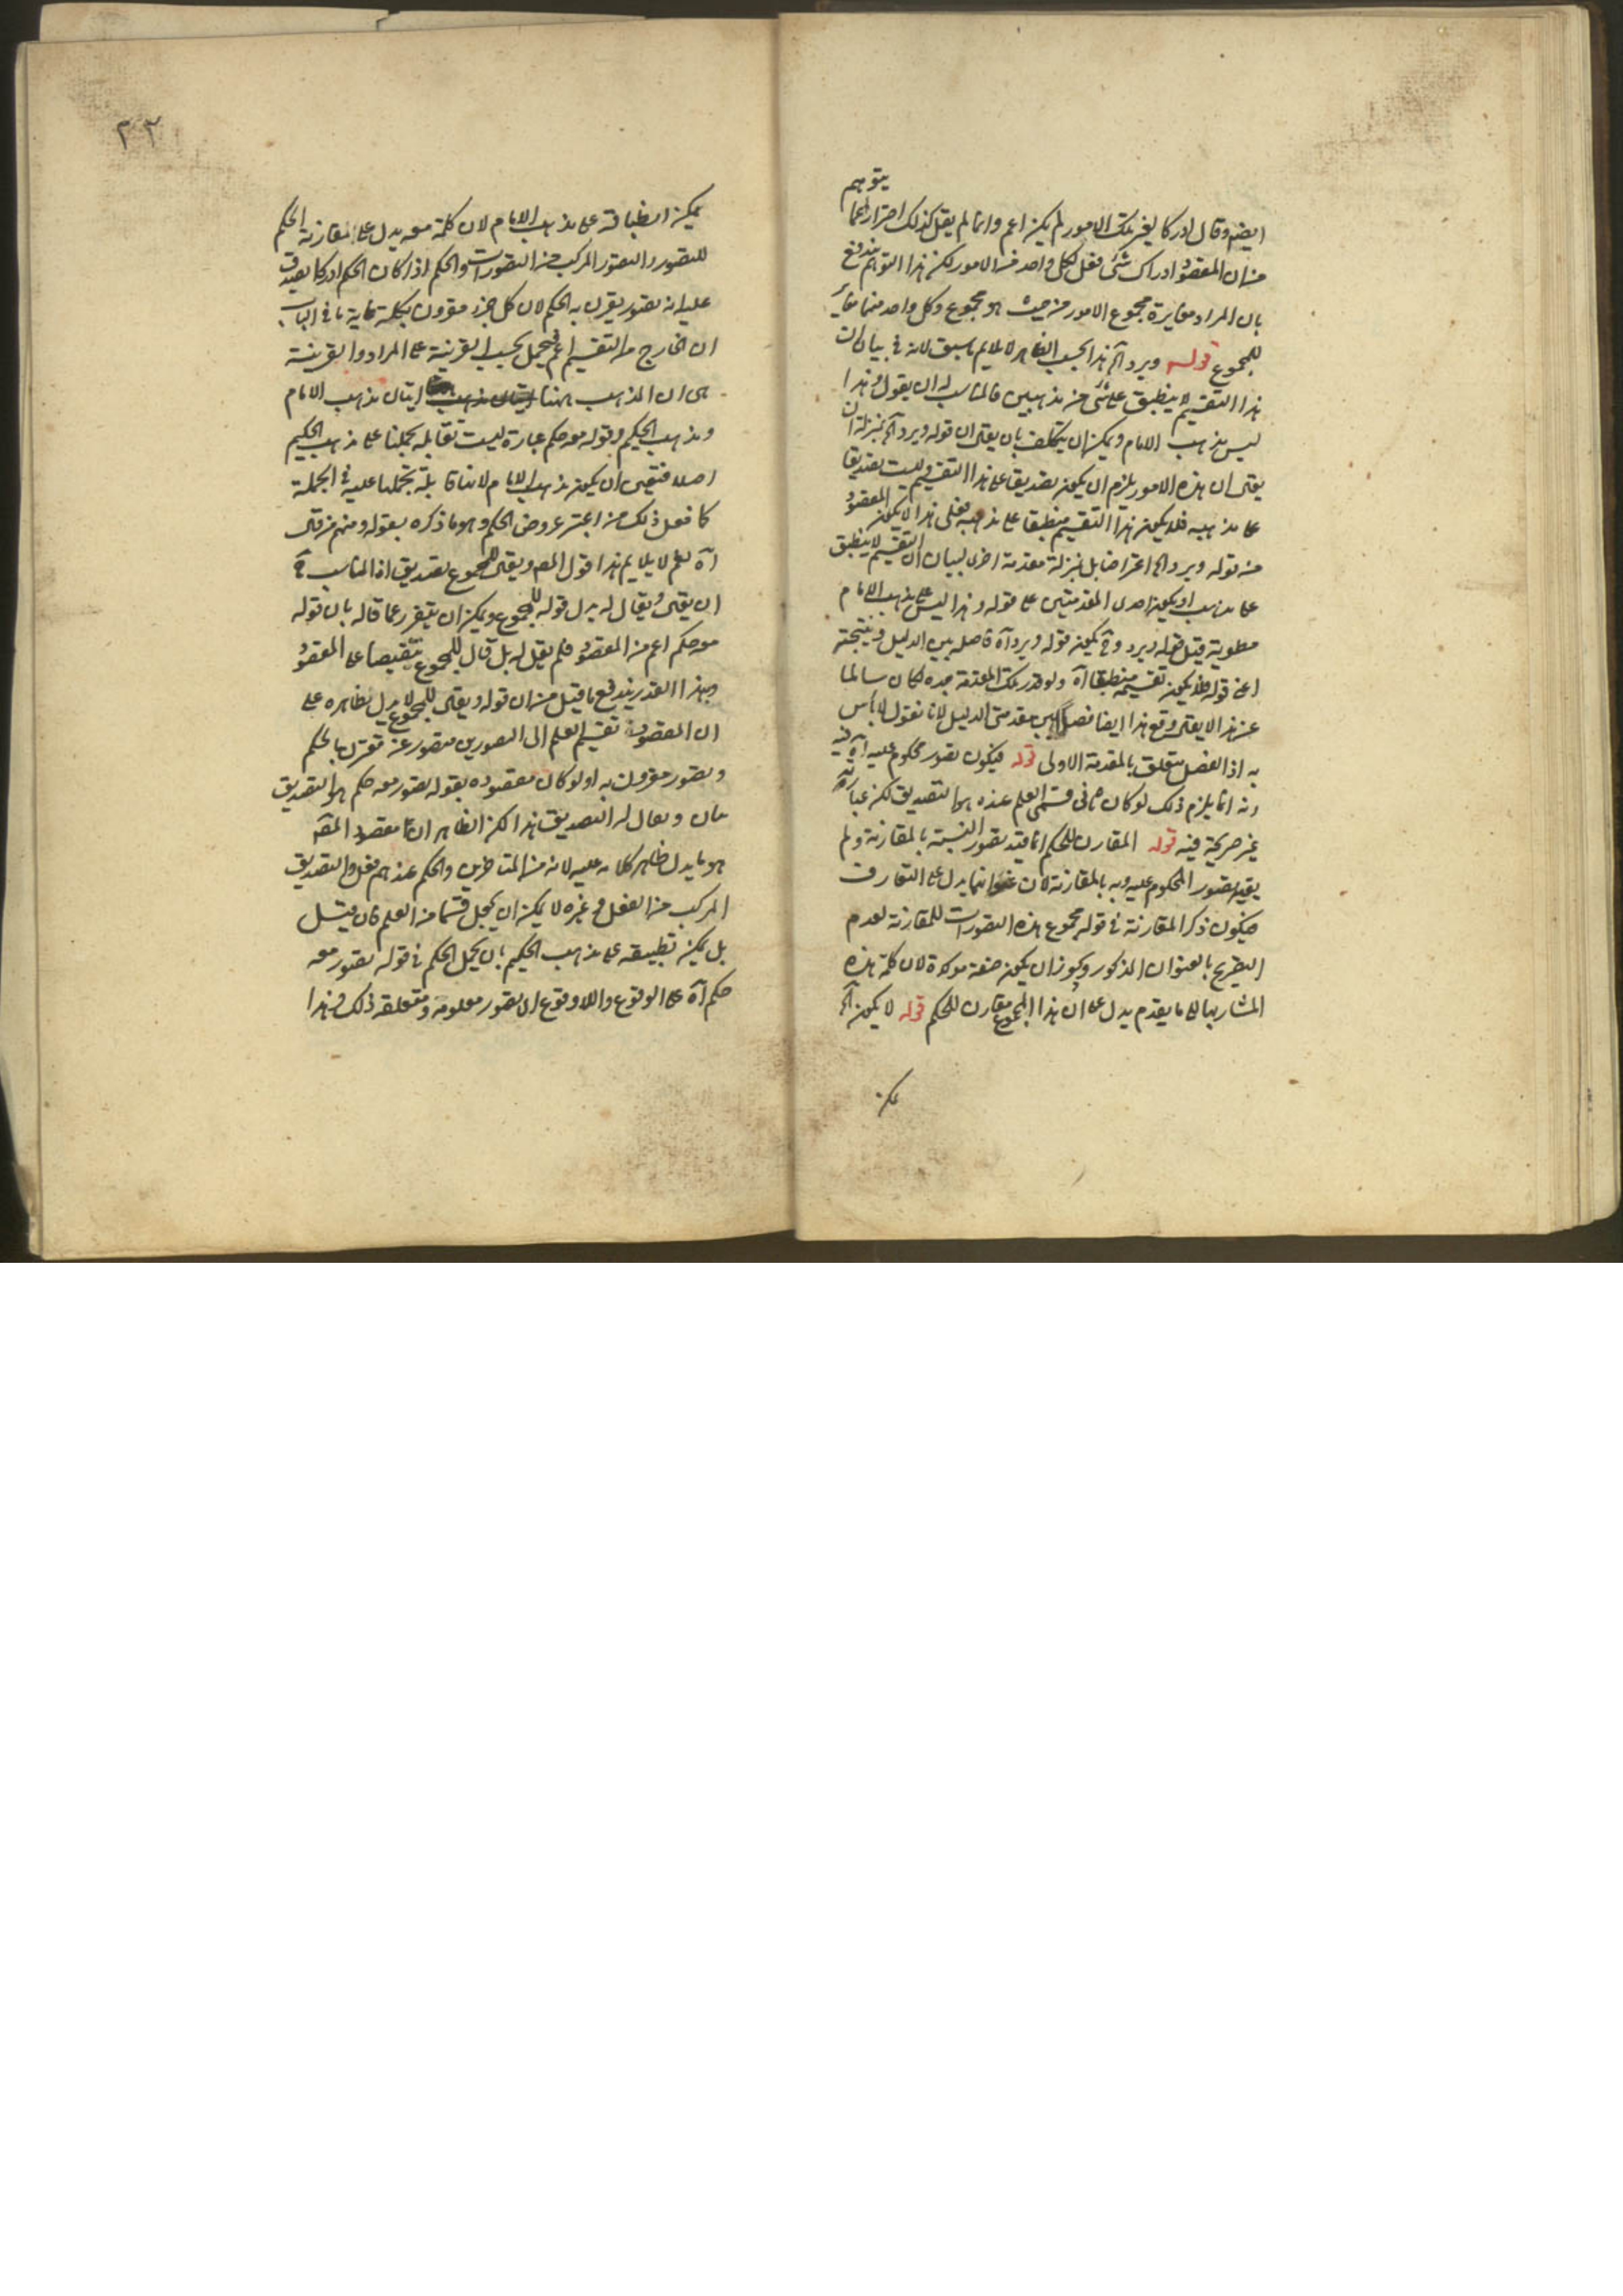 يتوهم
ايضا وقال ادراكا يغير تلك الامور لم يكن اعم وانما لم يقل كذلك احترازا عما
من ان المقصود ادراك شئ مغاير لكل واحد من الامور لكن هذا التوهم يندفع
بان المراد مغايرة مجموع الامور من حيث هو مجموع وكل واحد منها مغاير
للمجموع قوله ويرد آه هذا بحسب الظاهر لا يلايم ما سبق لانه في بيان ان
هذا التقسيم لا ينطبق على شئ من مذهبين فالمناسب له ان يقول وهذا
ليس مذهب الامام ويمكن ان يتكلف بان يقى ان قوله ويرد آه بمنزلة ان
يقى ان هذه الامور يلزم ان يكون تصديقا على هذا التقسيم وليست تصديقا
على مذهبه فلا يكون هذا التقسيم منطبقا على مذهبه فعلى هذا لا يكون المقصود
من قوله ويرد آه اعتراضا بل بمنزلة مقدمة اخرى لبيان ان التقسيم لا ينطبق
على مذهب او يكون احدى المقدمتين على قوله وهذا ليس على مذهب الامام
مطوية قبل قوله ويرد وح يكون قوله ويرد آه فاصلة بين الدليل ونتيجته
اعنى قوله فلا يكون تقسيمه منطبقا آه ولو قدر تلك المقدمة بعده لكان سالما
عن هذا لا يقى وقع هذا ايضا فصل بين مقدمتى الدليل لانا نقول لا بأس
به اذ الفصل متعلق بالمقدمة الاولى قوله فيكون تصور محكوم عليه آه فيه
انه انما يلزم ذلك لو كان ثانى قسمى العلم عنده هو التصديق لكن عبارته
غير صريحة فيه قوله المقارن للحكم انما قيد تصور النسبة بالمقارنة ولم
يقيد تصور المحكوم عليه وبه بالمقارنة لان انما يدل على التقارن
فيكون ذكر المقارنة في قوله مجموع هذه التصورات للمقارنة لعدم
التصريح بالعنوان المذكور ويجوز ان يكون صفة موكدة لان كلمة هذه
المشار بها الى ما تقدم يدل على ان هذا المجموع مقارن للحكم قوله لا يكون آه
يمكن
٢٢
يمكن انطباقه على مذهب الامام لان كلمة معه يدل على مقارنة الحكم
للتصور والتصور المركب من التصورات والحكم اذا كان الحكم ادراكا يصدق
عليه انه تصور يقرن به الحكم لان كل جزء مقرون بكله غاية ما في الباب
ان الخارج من التقسيم اعم فيحمل بحسب القرينة على المراد والقرينة
هى ان المذهب ههنا اثنان مذهب الامام
ومذهب الحكيم وقوله معه حكم عبارة ليست تقابله بحملنا على مذهب الحكيم
اصلا فتعين ان يكون مذهب الامام لانها قابلة بحملها عليه في الجملة
كما فعل ذلك من اعتبر عروض الحكم وهو ما ذكره بقوله ومنهم من قى
آه نعم لا يلايم هذا قول المص ويقى للمجموع تصديق اذ المناسب ح
ان يقى ويقال له بدل قوله للمجموع ويمكن ان يتفرر عما قاله بان قوله
معه حكم اعم من المقصود فلم يقل له بل قال للمجموع تنقيصا على المقصود
وبهذا القدر يندفع ما قيل من ان قوله ويقى للمجموع لا يدل بظاهره على
ان المقصود تقسيم العلم الى التصورين تصور غير مقترن بالحكم
وتصور مقرون به اولو كان مقصوده بقوله تصور معه حكم هو التصديق
بان ويقال له التصديق هذا لكن الظاهر ان مقصود المص
هو ما يدل ظاهر كلامه عليه لانه من المتاخرين والحكم عندهم فعل والتصديق
المركب من الفعل وغيره لا يمكن ان يجعل قسما من العلم فان قيل
بل يمكن تطبيقه على مذهب الحكيم بان يحمل الحكم في قوله تصور معه
حكم آه على الوقوع واللاوقوع اى تصور معلومه ومتعلقه ذلك وهذا